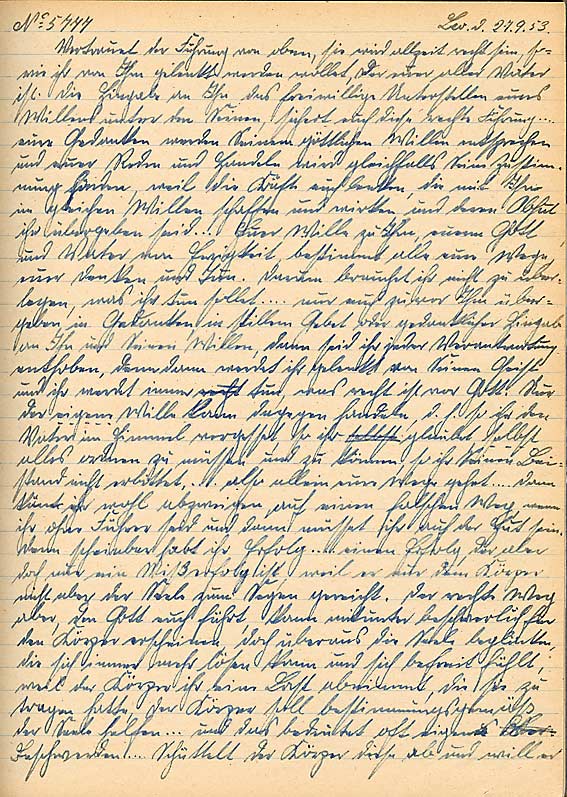 No 5777 Leo. d. 27.9.53.
Vertrauet der Führung von oben, sie wird allzeit recht sein, so-
wie ihr von Ihm gelenkt werden wollet, Der euer aller Vater
ist. Die Hingabe an Ihn, das freiwillige Unterstellen eures
Willens unter den Seinen, sichert euch diese rechte Führung....
eure Gedanken werden Seinem göttlichen Willen entsprechen
und euer Reden und Handeln wird gleichfalls Seine Zustim-
mung finden, weil die Kräfte euch leiten, die mit Ihm
in gleichem Willen schaffen und wirken, und deren Obhut
ihr übergeben seid.... Euer Wille zu Ihm, eurem Gott
und Vater von Ewigkeit, bestimmt alle eure Wege,
euer Denken und Tun. Darum brauchet ihr nicht zu über-
legen, was ihr tun sollet.... nur euch zuvor Ihm über-
geben, in Gedanken in stillem Gebet oder gedanklicher Hingabe
an Ihn und Seinen Willen, dann seid ihr jeder Verantwortung
enthoben, denn dann werdet ihr gelenkt von Seinem Geist
und ihr werdet immer tun, was recht ist vor Gott. Nur
der eigene Wille kann dagegen handeln, d. h. so ihr den
Vater im Himmel vergesset, so ihr glaubet, selbst
alles ordnen zu müssen und zu können, so ihr Seinen Bei-
stand nicht erbittet,.... also allein eure Wege gehet.... dann
könnt ihr wohl abzweigen auf einen falschen Weg, wenn
ihr ohne Führer seid und dann müsset ihr auf der Hut sein.
Denn scheinbar habt ihr Erfolg.... einen Erfolg, der aber
doch nur ein Mißerfolg ist, weil er nur dem Körper
nicht aber der Seele zum Segen gereicht. Der rechte Weg
aber, den Gott euch führt, kann mitunter beschwerlich für
den Körper erscheinen, doch überaus die Seele beglücken,
die sich immer mehr lösen kann und sich befreit fühlt,
weil der Körper ihr eine Last abnimmt, die sie zu
tragen hatte. Der Körper soll bestimmungsgemäß
der Seele helfen... und das bedeutet oft eigene
Beschwerden.... Schüttelt der Körper diese ab und will er